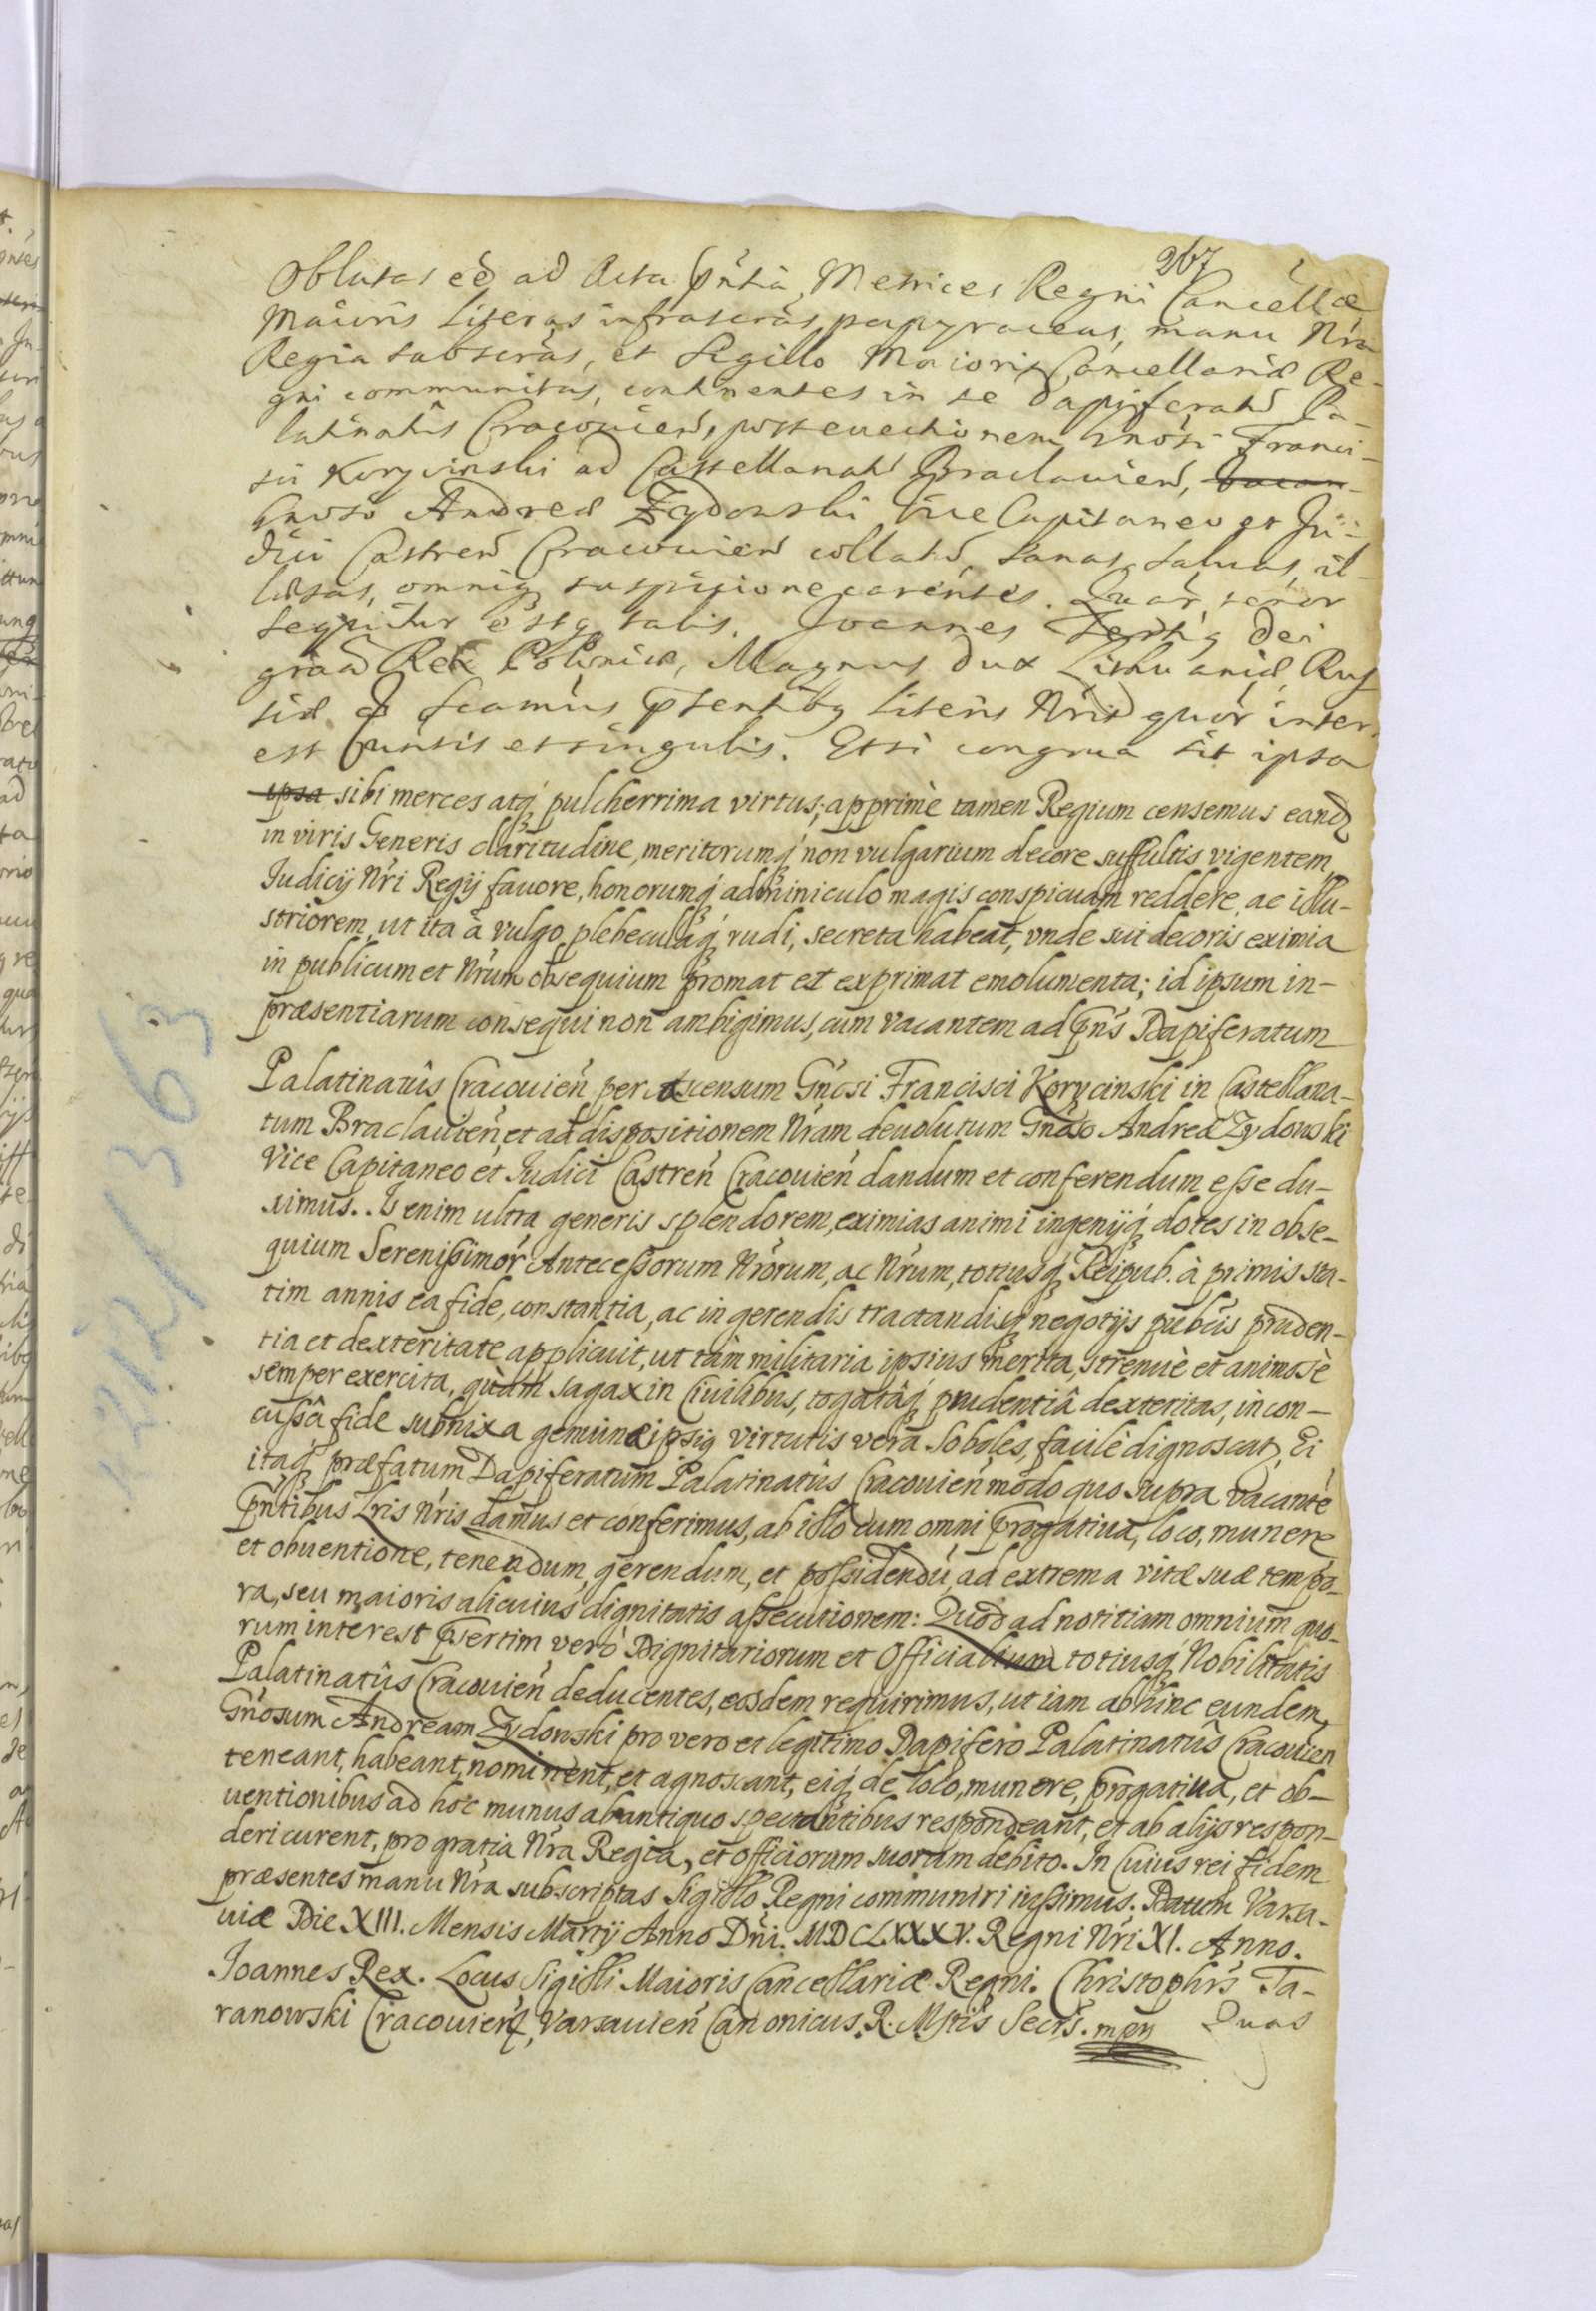 267
Oblatas eẽ ad Acta p̃ntia Metrices Regni Cancellæ
Maioris Literas infrascras papyraceas, manu Nra
Regia subscras, et Sigillo Maioris Cancellariæ Re-
gni communitas, continentes in se Dapiferatũ Pa-
latinatûs Cracovien, post evectionem Gnosi Franci-
sci Korycinski ad Castellanatũ Braclavien, vacan-
Gnoso Andreæ Zydowski Vice Capitaneo et Ju-
dici Castren Cracovien collatũ, sanas, salvas, il-
læsas, omniq suspicione carentes. Quar, tenor
sequitur estq talis. Joannes Tertiq Dei
gratia Rex Poloniæ, Magnus Dux Lithuaniæ, Rus
siæ & Seamus p̃sentibq Literis Nris quor inter-
est cunctis et singulis. Etsi congrua sit ipsa
ipsa sibi merces atq́ pulcherrima virtus; apprimè tamen Regium censemus eand
in viris Generis claritudine, meritorumq́ non vulgarium decore suffultis vigentem,
Judicij Nri Regij favore, honorumq́ adminiculo magis conspicuam reddere, ac illu-
striorem, ut ita à vulgo, plebeculaq́ rudi, secreta habeat, vnde sui decoris eximia
in publicum et Nrum obsequium promat et exprimat emolumenta; id ipsum in-
præsentiarum consequi non ambigimus, cum vacantem ad p̃ns Dapiferatum
Palatinatûs Cracouien per ascensum Gnosi Francisci Korycinski in Castellana-
tum Braclauien et ad dispositionem Nram deuolutum Gnoso Andreæ Zydowski
Vice Capitaneo et Judici Castren Cracouien dandum et conferendum esse du-
ximus. Is enim ultra generis splendorem, eximias animi ingenijq́ dotes in obse-
quium Serenissimor Antecessorum Nrorum, ac Nrum, totiusq́ Reipub. à primis sta-
tim annis ea fide, constantia, ac in gerendis tractandisq́ negotijs publis pruden-
tia et dexteritate applicuit, ut tàm militaria ipsius merita, strenuè et animosè
semper exercita, quàm sagax in Ciuilibus, togatâq́ prudentiâ dexteritas, incon-
cussâ fide subnixa genuinæ ipsiq virtutis vera Soboles, facilè dignoscat, Ei
itaq́ præfatum Dapiferatum Palatinatûs Cracouien modo quo supra vacantẽ
p̃ntibus Lris Nris damus et conferimus, ab illo cum omni p̃rogatiua, loco, munere
et obuentione, tenendum, gerendum, et possidendũ, ad extrema vitæ suæ tempo-
ra, seu maioris alicuius dignitatis assecutionem: Quod ad notitiam omnium quo-
rum interest p̃sertim verò Dignitariorum et Officialium totiusq́ Nobilitatis
Palatinatûs Cracouien deducentes, eosdem requirimus, ut iam abhinc eundem
Gnosum Andream Zydowski pro vero et legitimo Dapifero Palatinatûs Cracouien
teneant, habeant, nominent, et agnoscant, eiq́ de loco, munere, p̃rogatiua, et ob-
uentionibus ad hoc munus ab antiquo spectantibus respondeant, et ab alijs respon-
deri curent, pro gratia Nra Regia, et officiorum suorum debito. In Cuius rei fidem
præsentes manu Nra subscriptas Sigillo Regni communiri iussimus. Datum Varsa-
uiæ Die XIII. Mensis Martij Anno Dni. MDCLXXXV. Regni Nri XI. Anno.
Joannes Rex. Locus Sigilli Maioris Cancellariæ Regni. Christophrs Ta-
ranowski Cracouien, Varsauien Canonicus. R. Mtis Secrs. mpp Quas